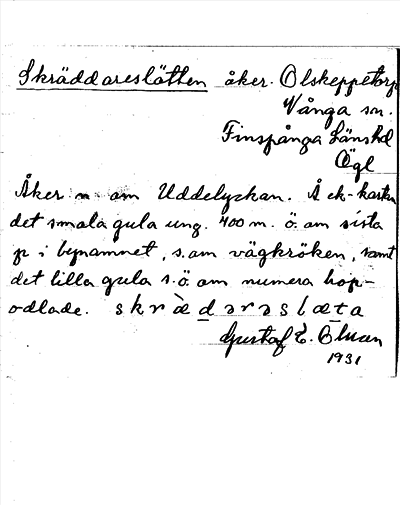 Skräddareslätten åker. Olskeppetorp
Vånga sn.
Finspånga länshd
Ögl
Åker n om Uddelyckan. Å ek-kartan
det smala gula ung. 400 m. ö. om sista
p i bynamnet, s. om vägkröken, samt
det lilla gula s.ö. om numera hop-
odlade. skrædərəslæta
Gustaf E.
1931